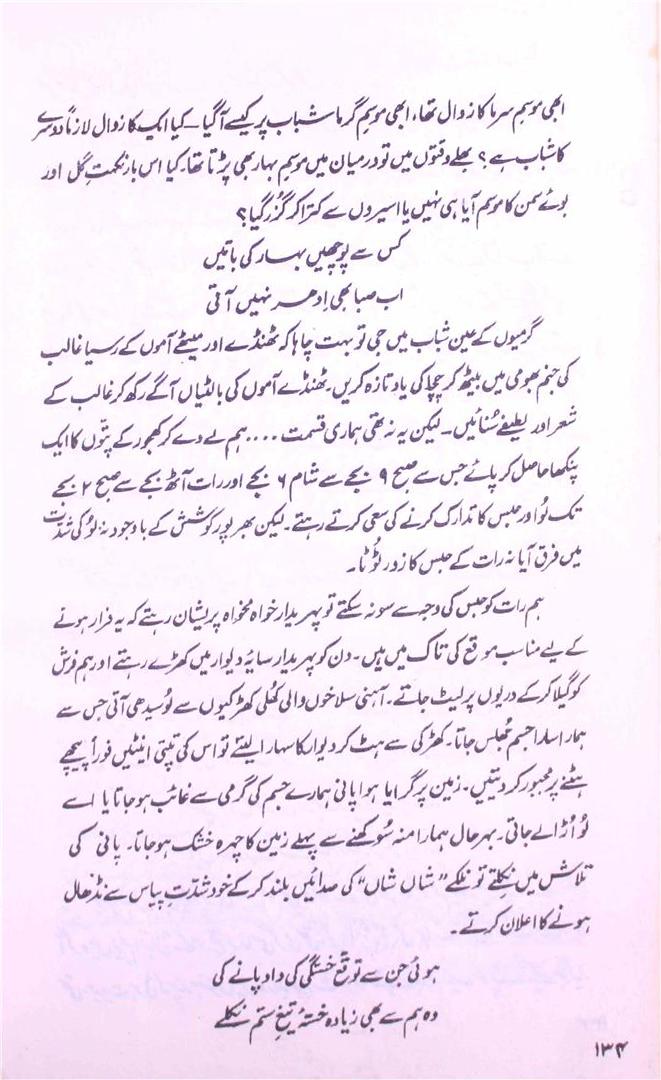 ابھی موسمِ سرما کا زوال تھا، ابھی موسمِ گرما شباب پر کیسے آگیا ــ کیا ایک کا زوال لازماً دوسرے
کا شباب ہے؟ بھلے وقتوں میں تو درمیان میں موسمِ بہار بھی پڑتا تھا۔ کیا اس بار نکہتِ گُل اور
بوئے سمن کا موسم آیا ہی نہیں یا اسیروں سے کترا کر گزر گیا؟
کس سے پوچھیں بہار کی باتیں
اب صبا بھی اِدھر نہیں آتی
گرمیوں کے عین شباب میں جی تو بہت چاہا کہ ٹھنڈے اور میٹھے آموں کے رسیا غالب
کی جنم بھومی میں بیٹھ کر چچا کی یاد تازہ کریں۔ ٹھنڈے آموں کی بالٹیاں آگے رکھ کر غالب کے
شعر اور لطیفے سُنائیں۔ لیکن یہ نہ تھی ہماری قسمت .... ہم لے دے کر کھجور کے پتّوں کا ایک
پنکھا حاصل کر پائے جس سے صبح ۹ بجے سے شام ۶ بجے اور رات آٹھ بجے سے صبح ۲ بجے
تک لُو اور حبس کا تدارک کرنے کی سعی کرتے رہتے۔ لیکن بھرپور کوشش کے باوجود نہ لُو کی شدّت
میں فرق آیا نہ رات کے حبس کا زور ٹُوٹا۔
ہم رات کو حبس کی وجہ سے سو نہ سکتے تو پہریدار خواہ مخواہ پریشان رہتے کہ یہ فرار ہونے
کے لیے مناسب موقع کی تاک میں ہیں۔ دن کو پہریدار سایۂ دیوار میں کھڑے رہتے اور ہم فرش
کو گیلا کر کے دریوں پر لیٹ جاتے۔ آہنی سلاخوں والی کھُلی کھڑکیوں سے لُو سیدھی آتی جس سے
ہمارا سارا جسم جھلس جاتا۔ کھڑکی سے ہٹ کر دیوار کا سہارا لیتے تو اس کی تپتی اینٹیں فوراً پیچھے
ہٹنے پر مجبور کر دیتیں۔ زمین پر گرایا ہوا پانی ہمارے جسم کی گرمی سے غائب ہو جاتا یا اسے
لُو اُڑا لے جاتی۔ بہرحال ہمارا منہ سُوکھنے سے پہلے زمین کا چہرہ خشک ہو جاتا۔ پانی کی
تلاش میں نکلتے تو نلکے "شاں شاں" کی صدائیں بلند کر کے خود شدّتِ پیاس سے نڈھال
ہونے کا اعلان کرتے۔
ہوئی جن سے توقع خستگی کی داد پانے کی
وہ ہم سے بھی زیادہ خستۂ تیغِ ستم نکلے
۱۳۴